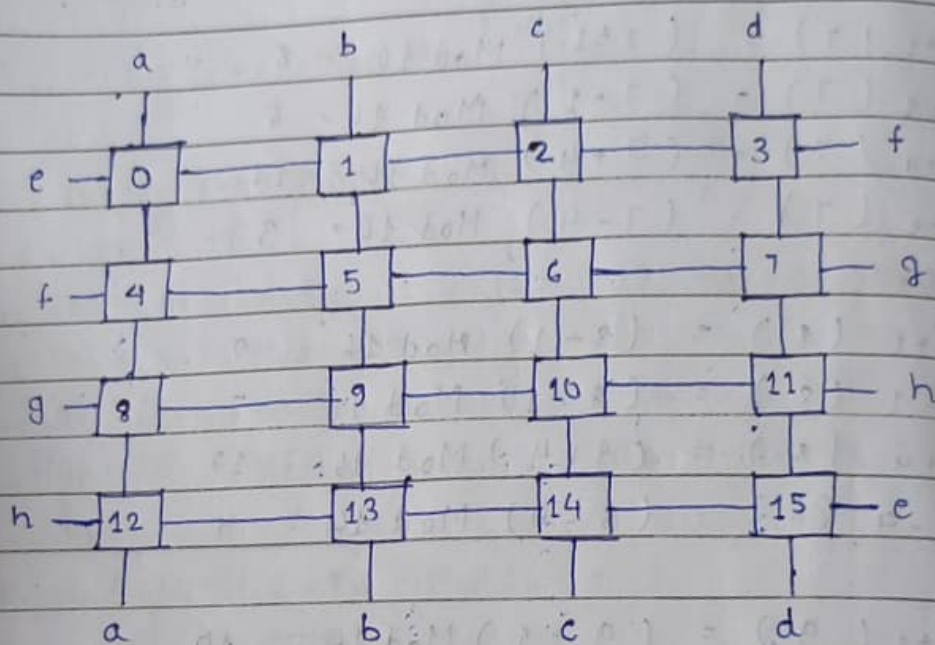 a b c d
e 0 1 2 3 f
f 4 5 6 7 g
g 8 9 10 11 h
h 12 13 14 15 e
a b c d